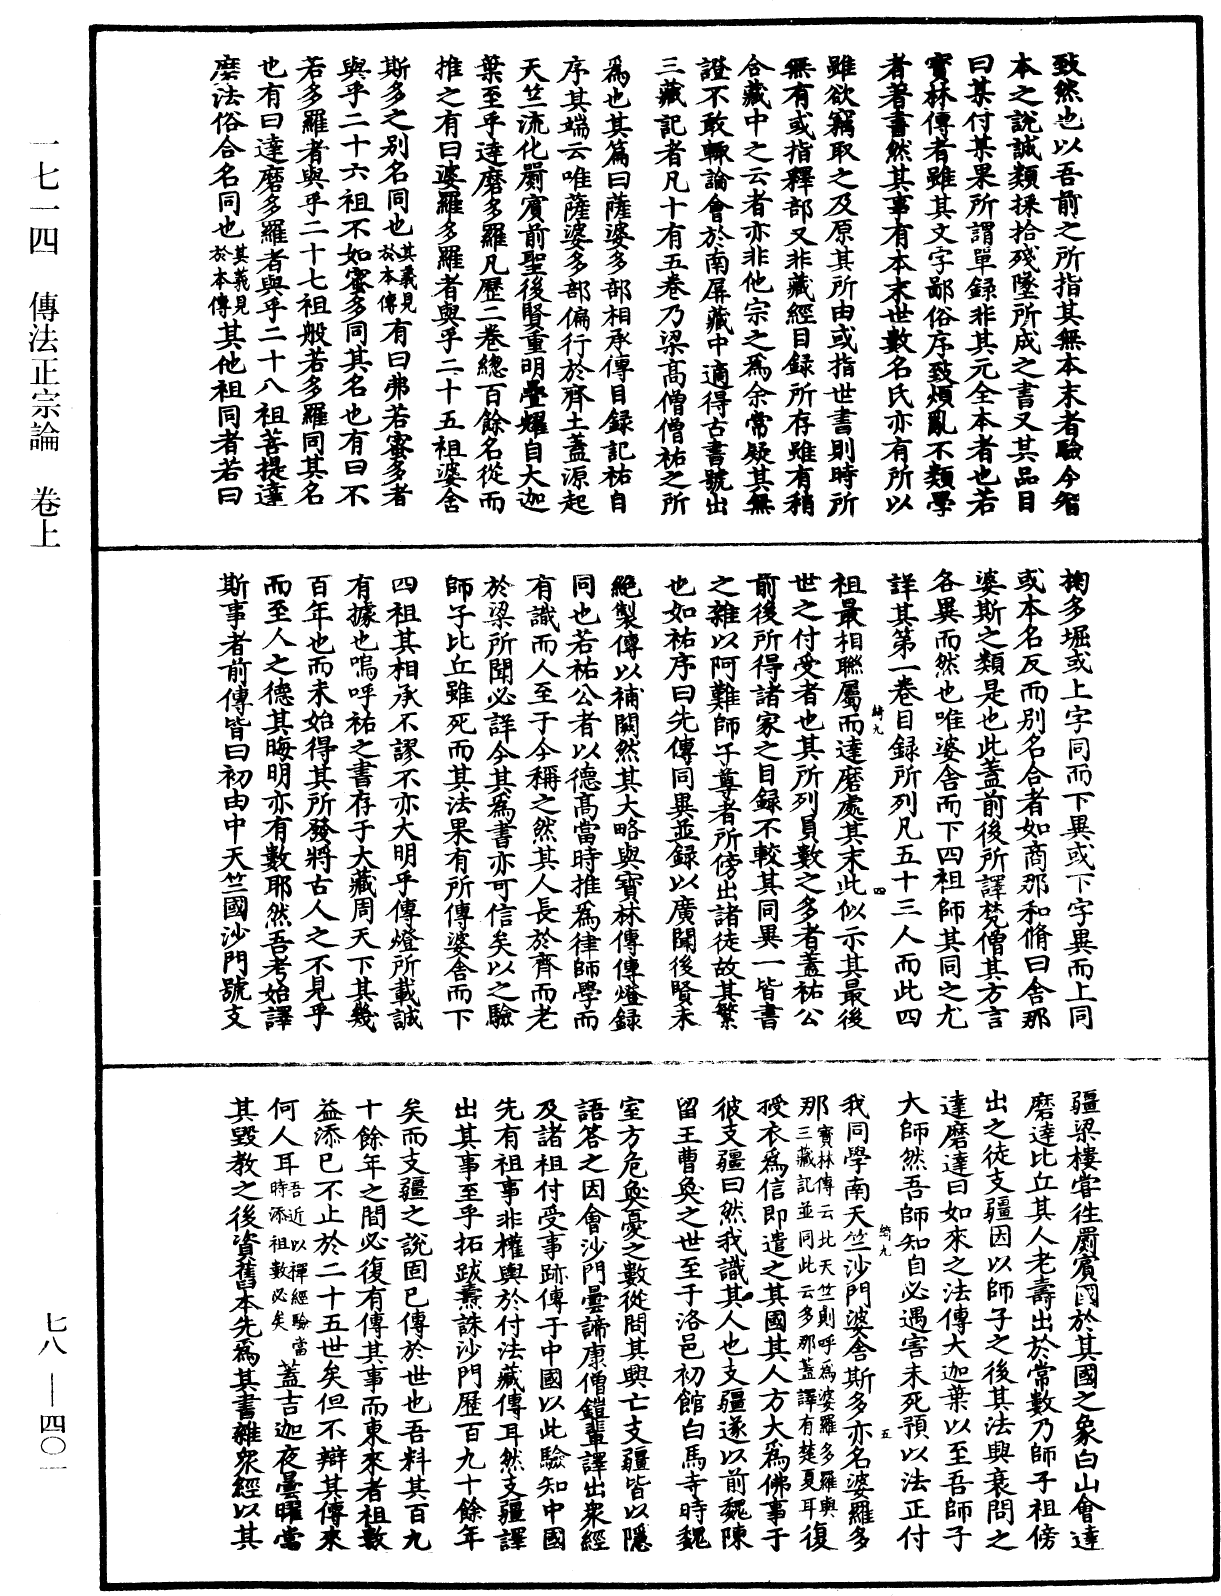 致然也以吾前之所指其無本末者驗今智
本之說誠類採拾殘墜所成之書又其品目
曰某付某果所謂單録非其元全本者也若
寶林傳者雖其文字鄙俗序致煩亂不類學
者著書然其事有本末世數名氏亦有所以
雖欲竊取之及原其所由或指世書則時所
無有或指釋部又非藏經目録所存雖有稍
合藏中之云者亦非他宗之爲余常疑其無
證不敢輙論會於南屏藏中適得古書號出
三藏記者凡十有五卷乃梁髙僧僧祐之所
爲也其篇曰薩婆多部相承傳目録記祐自
序其端云唯薩婆多部偏行於齊土蓋源起
天竺流化罽賓前聖後賢重明疊耀自大迦
葉至乎達磨多羅凡歷二卷總百餘名從而
推之有曰婆羅多羅者與乎二十五祖婆舍
斯多之别名同也其義見於本傳有曰弗若蜜多者
與乎二十六祖不如蜜多同其名也有曰不
若多羅者與乎二十七祖般若多羅同其名
也有曰達磨多羅者與乎二十八祖菩提達
磨法俗合名同也其義見於本傳其他祖同者若曰
掬多堀或上字同而下異或下字異而上同
或本名反而别名合者如商那和脩曰舍那
婆斯之類是也此蓋前後所譯梵僧其方言
各異而然也唯婆舍而下四祖師其同之尤
詳其第一卷目録所列凡五十三人而此四
祖最相聮屬而達磨處其末此似示其最後
世之付受者也其所列員數之多者蓋祐公
前後所得諸家之目録不較其同異一皆書
之雜以阿難師子尊者所傍出諸徒故其繁
也如祐序曰先傳同異並録以廣聞後賢未
絶製傳以補闕然其大略與寶林傳傳燈録
同也若祐公者以德髙當時推爲律師學而
有識而人至于今稱之然其人長於齊而老
於梁所聞必詳今其爲書亦可信矣以之驗
師子比丘雖死而其法果有所傳婆舍而下
四祖其相承不謬不亦大明乎傳燈所載誠
有據也嗚呼祐之書存于大藏周天下其幾
百年也而未始得其所發將古人之不見乎
而至人之德其晦明亦有數耶然吾考始譯
斯事者前傳皆曰初由中天竺國沙門號支
疆梁樓甞徃罽賓國於其國之象白山會達
磨達比丘其人老壽出於常數乃師子祖傍
出之徒支疆因以師子之後其法興衰問之
達磨達曰如來之法傳大迦葉以至吾師子
大師然吾師知自必遇害未死預以法正付
我同學南天竺沙門婆舍斯多亦名婆羅多
那寶林傳云北天竺則呼爲婆羅多羅與三藏記並同此云多那蓋譯有楚夏耳復
授衣爲信即遣之其國其人方大爲佛事于
彼支疆曰然我識其人也支疆遂以前魏陳
留王曹奐之世至于洛邑初館白馬寺時魏
室方危奐憂之數從問其興亡支疆皆以隱
語答之因會沙門曇諦康僧鎧輩譯出衆經
及諸祖付受事跡傳于中國以此驗知中國
先有祖事非權輿於付法藏傳耳然支疆譯
出其事至乎拓跋燾誅沙門歷百九十餘年
矣而支疆之說固已傳於世也吾料其百九
十餘年之間必復有傳其事而東來者祖數
益添已不止於二十五世矣但不辯其傳來
何人耳吾近以禪經驗當時添祖數必矣蓋吉迦夜曇曜當
其毀教之後資舊本先爲其書雜衆經以其
綺九
四
綺九
五
一七一四　傳法正宗論　卷上
七八——四〇一